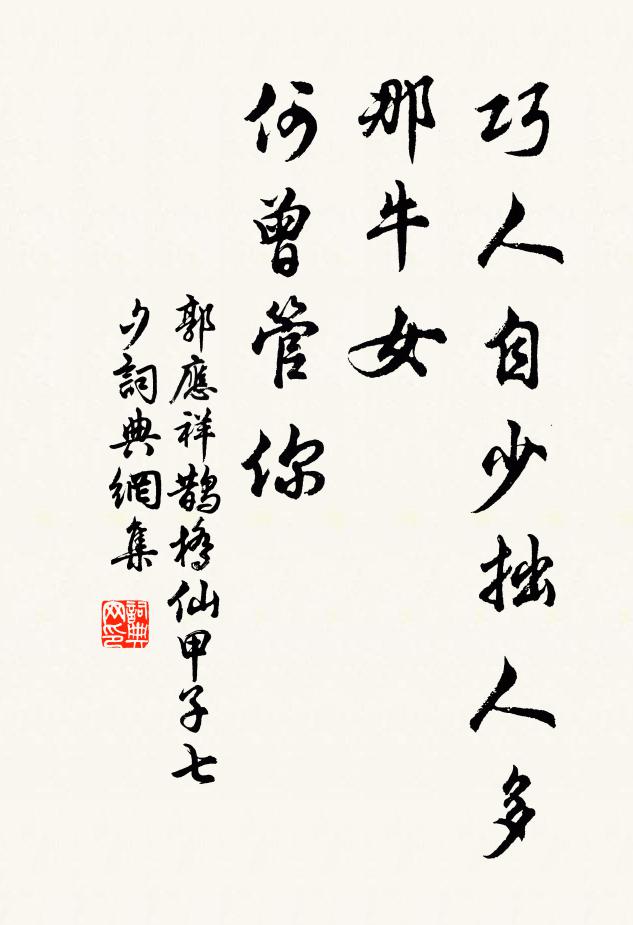 巧人自少拙人多
那牛女
何曾管你
郭應祥鵲橋仙甲子七
夕詞典網集
詞典
网印